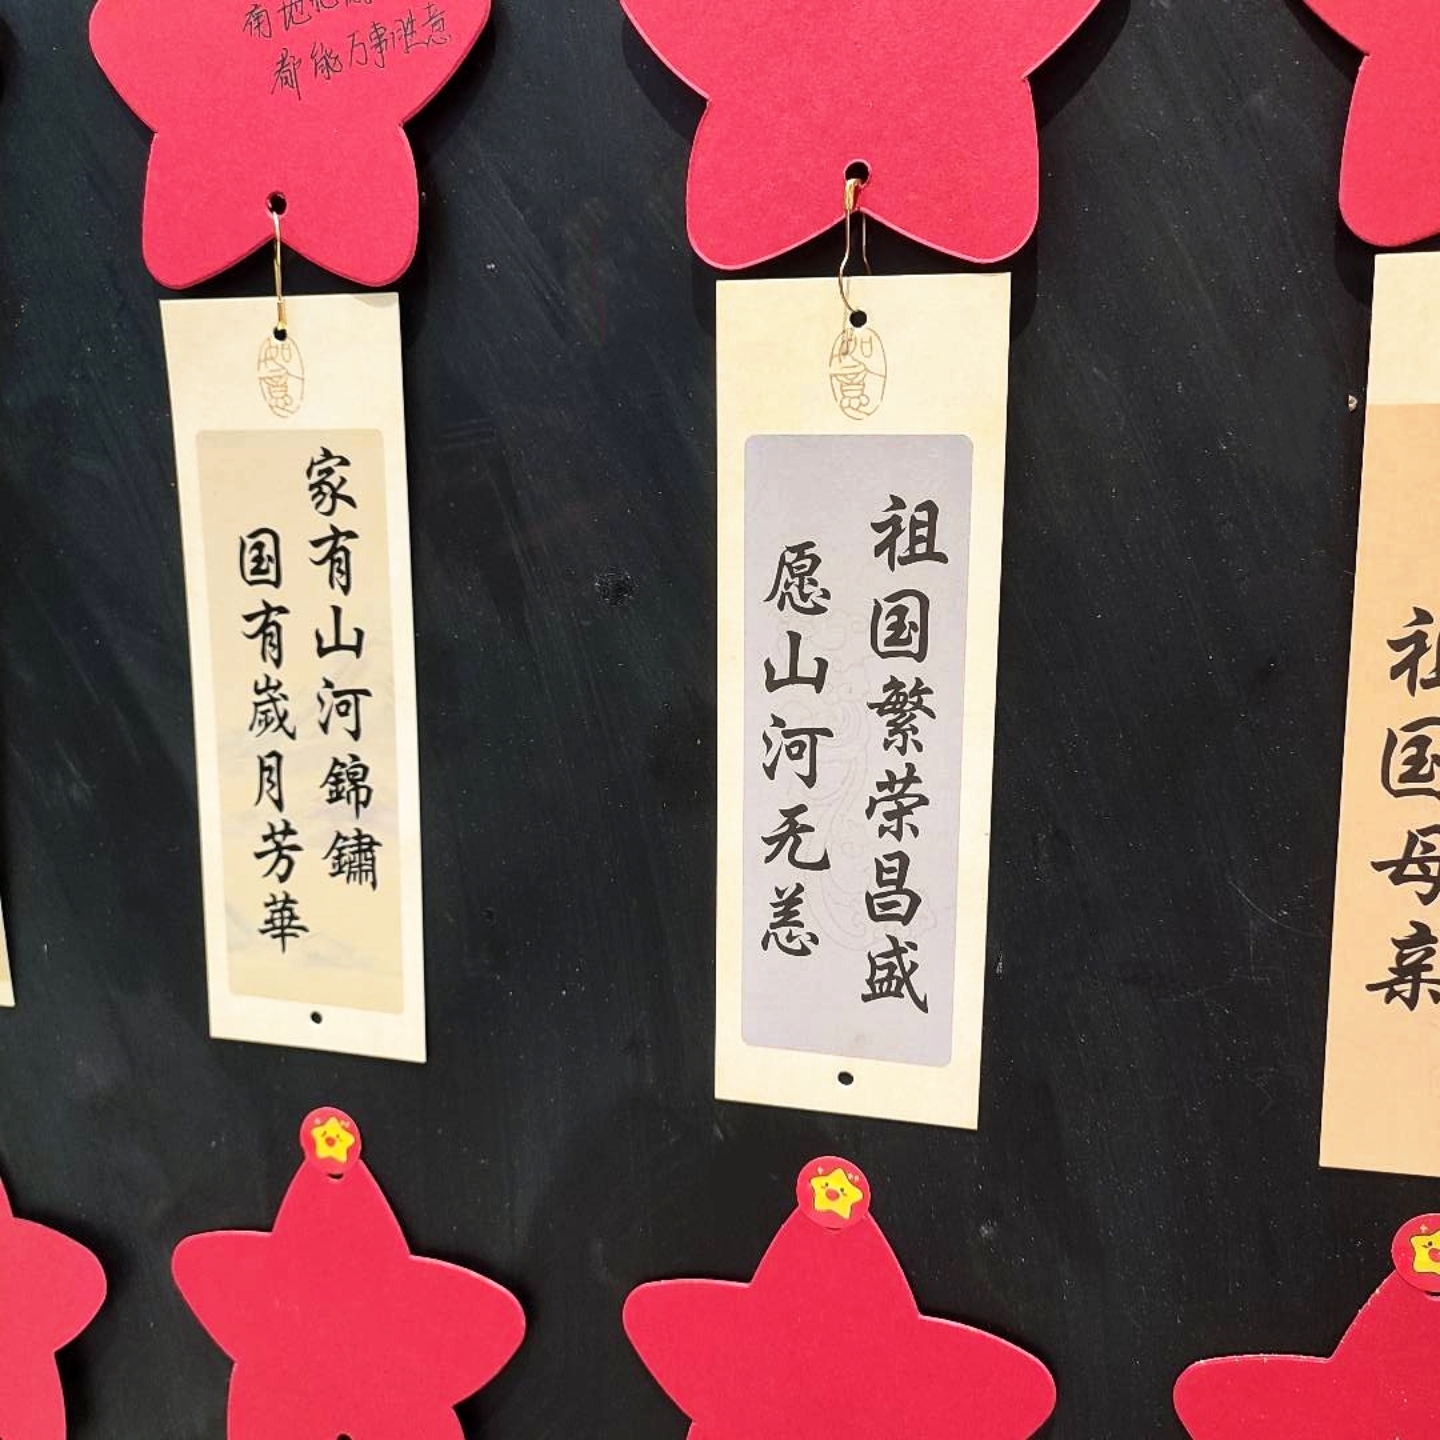 都能万事胜意
如意
家有山河錦鏽
国有歲月芳華
如意
祖国繁荣昌盛
愿山河无恙
祖国母亲